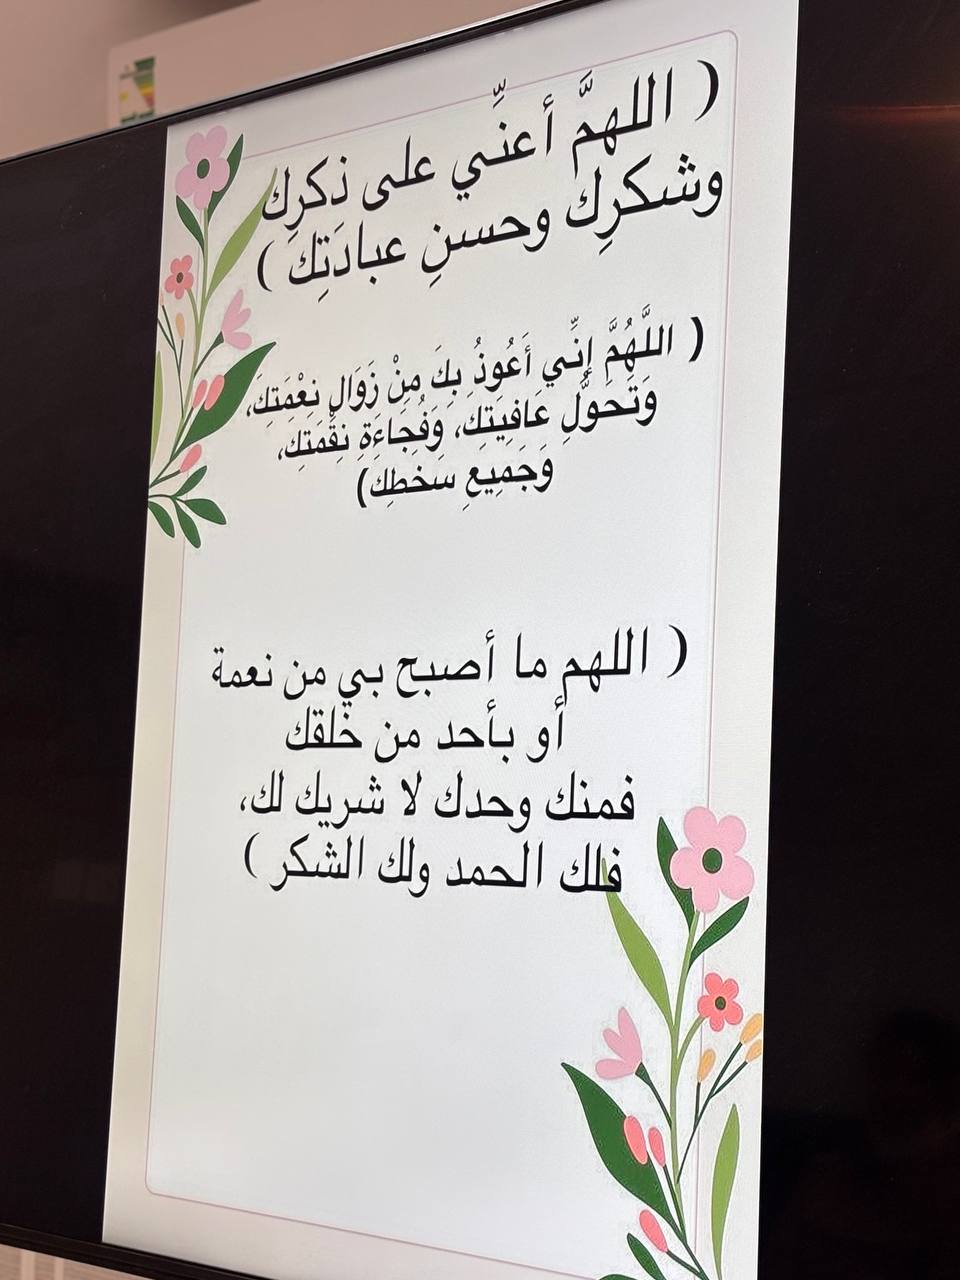 ( اللهمَّ أعنِّي على ذكرِك
وشكرِك وحسنِ عبادَتِك )
( اللَّهُمَّ إنِّي أَعُوذُ بِكَ مِنْ زَوَالِ نِعْمَتِكَ،
وَتَحَوُّلِ عَافِيَتِك، وَفُجَاءَةِ نِقْمَتِك،
وَجَمِيعِ سَخَطِك)
( اللهم ما أصبح بي من نعمة
أو بأحد من خلقك
فمنك وحدك لا شريك لك،
فلك الحمد ولك الشكر )